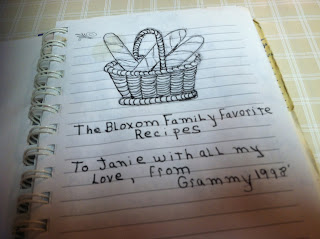 The Bloxom Family Favorite
Recipes
To Janie with all my
Love, from
Grammy 1998'